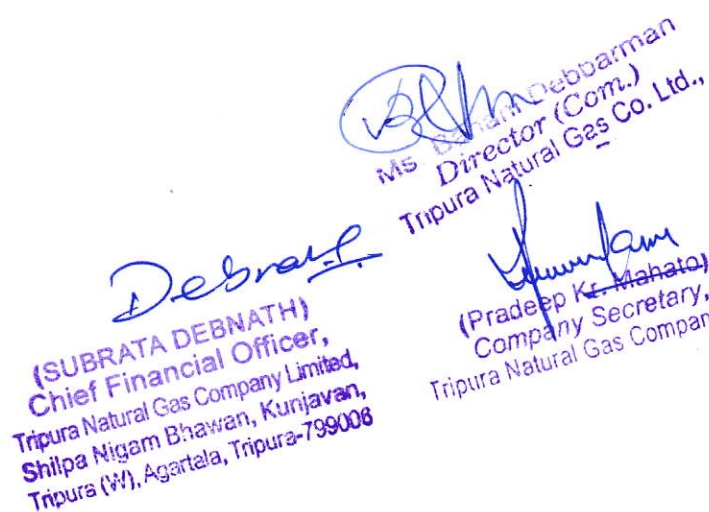 Ms. Debbarman
Director (Com.)
Tripura Natural Gas Co. Ltd.,
Debnath
(SUBRATA DEBNATH)
Chief Financial Officer,
Tripura Natural Gas Company Limited,
Shilpa Nigam Bhawan, Kunjavan,
Tripura (W), Agartala, Tripura-799006
(Pradeep Kr. Mahato)
Company Secretary,
Tripura Natural Gas Compan